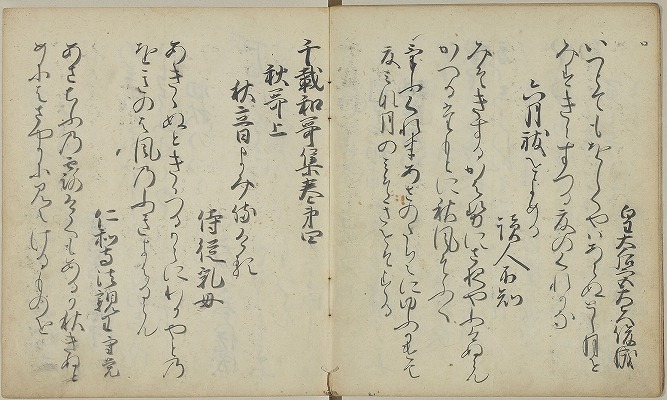 皇太后宮大夫俊成
いつとてもをしくやはあらぬとし月を
みそきにすつる夏のくれかな
六月祓をよめる
読人不知
みそきする かはせにさよやふけぬらん
かへるたもとに秋風そふく
けふくれはあさのたちえにゆふかけて
夏みな月の
千載和哥集巻第四
秋哥上
秋立日よみ侍ける
侍従乳母
あききぬときゝつるからにわかやとの
をきのは風のふきかはるらん
仁和寺法親王守覚
あさちふの露けくもあるか秋きぬと
めにはさやかに見えけるものを